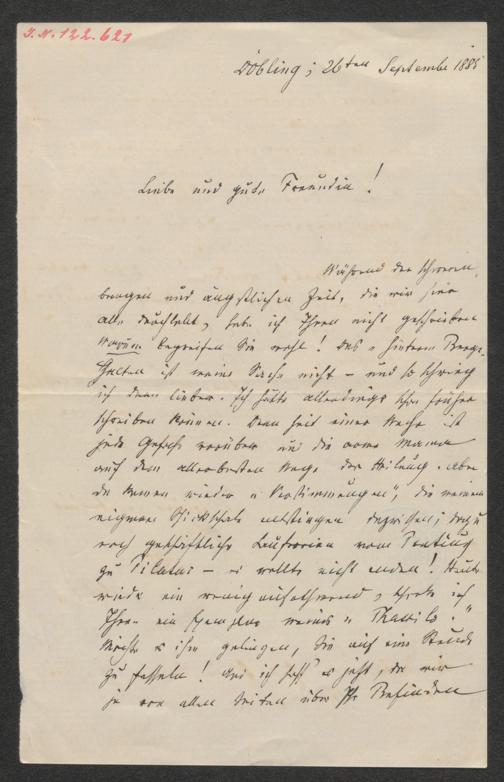 I.N. 122.621
Döbling, 26ten September 1885
Liebe und gute Freundin!
Während der schweren,
bangen und ängstlichen Zeit, die wir hier
alle durchlebt, habe ich Ihnen nicht geschrieben
Warum begreifen Sie wohl! Das "hinterm Berge-
Halten" ist meine Sache nicht – und so schwieg
ich denn lieber. Ich hätte allerdings schon früher
schreiben können. Denn seit einer Woche ist
jede Gefahr vorüber und die arme Mama
auf dem allerbesten Wege der Heilung. Aber
da kamen wieder "Verstimmungen", die meinem
eigenen Schicksale entstiegen dazwischen; dazu
noch geschäftliche Laufereien vom Pontius
zu Pilatus – es wollte nicht enden! Heute
wieder ein wenig aufathmend, schicke ich
Ihnen ein Exemplar meines "Thassilo."
Möchte es ihm gelingen, Sie auf eine Stunde
zu fesseln! Und ich hoff' es jetzt, da wir
ja von allen Seiten über Ihr Befinden